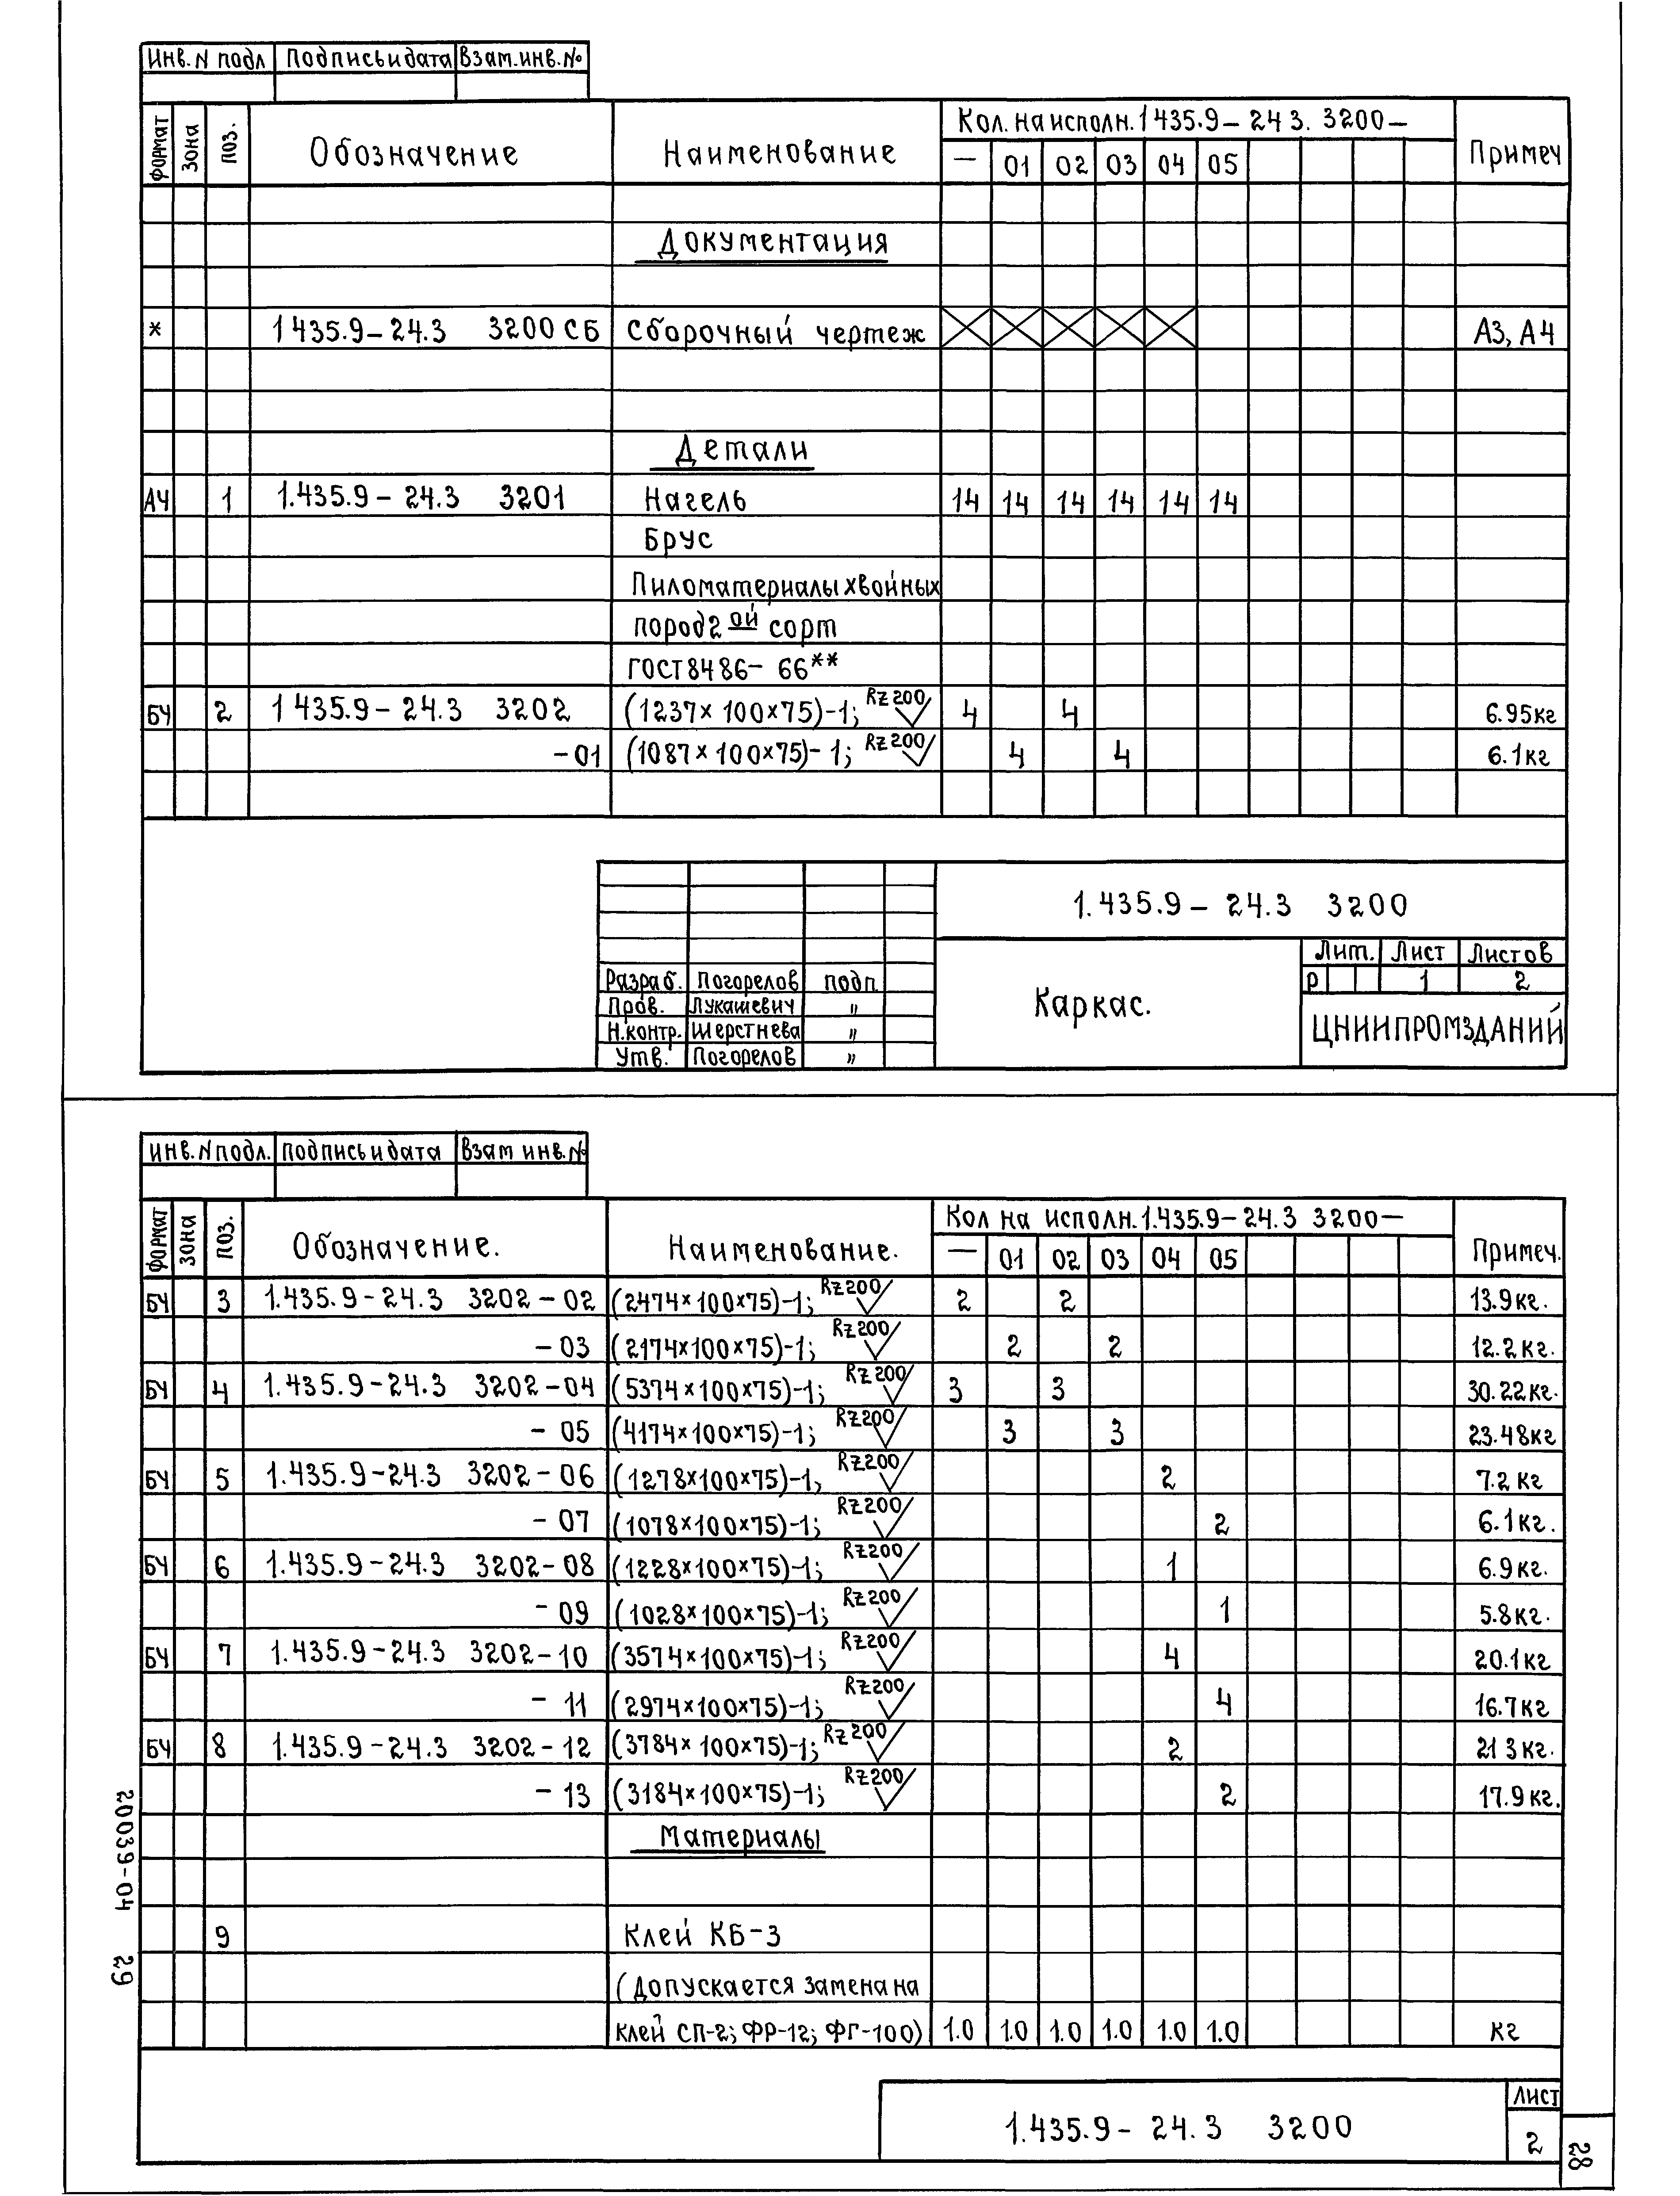 Инв. N подл Подпись и дата Взам. инв. №
формат зона поз. Обозначение Наименование Кол. на исполн. 1 435.9 – 24 3. 3200 – Примеч
— 01 02 03 04 05
Документация
* 1 435.9 – 24.3 3200 СБ Сборочный чертеж А3, А4
Детали
А4 1 1.435.9 – 24.3 3201 Нагель 14 14 14 14 14 14
Брус
Пиломатериалы хвойных
пород 2 ой сорт
ГОСТ 8486 – 66**
БЧ 2 1 435.9 – 24.3 3202 (1237×100×75)-1; Rz 200 4 4 6.95кг
– 01 (1087×100×75)-1; Rz 200 4 4 6.1кг
1.435.9 – 24.3 3200
Лит. Лист Листов
Р 1 2
Разраб. Погорелов подп
Пров. Лукашевич "
Н.контр. Шерстнева "
Утв. Погорелов "
Каркас.
ЦНИИПРОМЗДАНИЙ
Инв. N подл. Подпись и дата Взам инв. №
формат зона поз. Обозначение. Наименование. Кол на исполн. 1.435.9 – 24.3 3200 – Примеч.
— 01 02 03 04 05
БЧ 3 1.435.9 – 24.3 3202 – 02 (2474×100×75)-1; Rz 200 2 2 13.9кг.
– 03 (2174×100×75)-1; Rz 200 2 2 12.2кг.
БЧ 4 1.435.9 – 24.3 3202 – 04 (5374×100×75)-1; Rz 200 3 3 30.22кг.
– 05 (4174×100×75)-1; Rz 200 3 3 23.48кг
БЧ 5 1.435.9 – 24.3 3202 – 06 (1278×100×75)-1, Rz 200 2 7.2 кг
– 07 (1078×100×75)-1; Rz 200 2 6.1кг.
БЧ 6 1.435.9 – 24.3 3202 – 08 (1228×100×75)-1; Rz 200 1 6.9кг.
– 09 (1028×100×75)-1; Rz 200 1 5.8кг.
БЧ 7 1.435.9 – 24.3 3202 – 10 (3574×100×75)-1; Rz 200 4 20.1кг
– 11 (2974×100×75)-1; Rz 200 4 16.7кг
БЧ 8 1.435.9 – 24.3 3202 – 12 (3784×100×75)-1; Rz 200 2 21 3кг.
– 13 (3184×100×75)-1; Rz 200 2 17.9кг.
Материалы
9 Клей КБ-3
(Допускается замена на
клей СП-2; ФР-12; ФГ-100) 1.0 1.0 1.0 1.0 1.0 1.0 кг
20039-04 29
1.435.9 – 24.3 3200
Лист
2
28